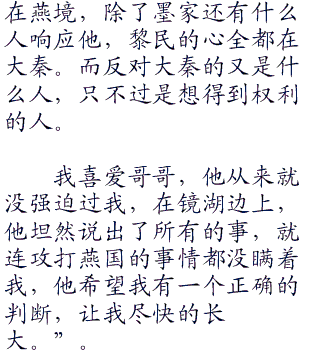 在燕境，除了墨家还有什么
人响应他，黎民的心全都在
大秦。而反对大秦的又是什
么人，只不过是想得到权利
的人。
我喜爱哥哥，他从来就
没强迫过我，在镜湖边上，
他坦然说出了所有的事，就
连攻打燕国的事情都没瞒着
我，他希望我有一个正确的
判断，让我尽快的长
大。”。